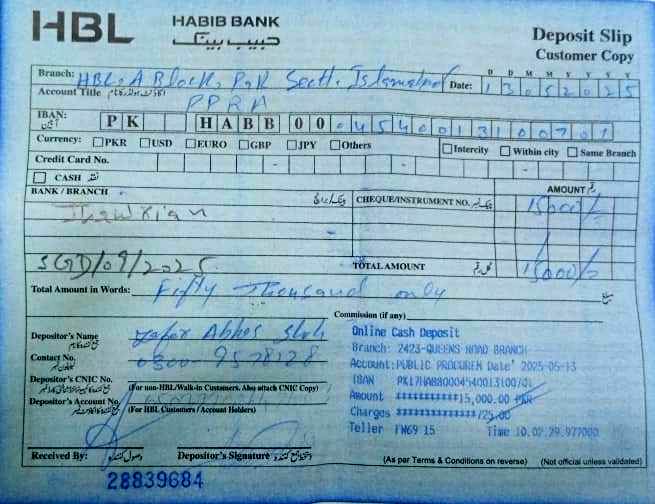 HBL HABIB BANK
حبیب بینک
Deposit Slip
Customer Copy
Branch: HBL, A Block, Pak Sectt. Islamabad Date: D D M M Y Y Y Y 1 3 0 5 2 0 2 5
Account Title PPRA
IBAN: P K H A B B 0 0 0 4 5 4 0 0 1 3 1 0 0 7 0 1
Currency: PKR USD EURO GBP JPY Others Intercity Within city Same Branch
Credit Card No.
CASH نقد AMOUNT رقم
BANK / BRANCH CHEQUE/INSTRUMENT NO. 15000/=
SGD/09/2025 TOTAL AMOUNT 15000/=
Total Amount in Words: Fifty Thousand only
Commission (if any)
Depositor's Name Abbas Shah Online Cash Deposit
Contact No. 0300-9578128 Branch: 2423-QUEENS ROAD BRANCH
Account:PUBLIC PROCUREM Date' 2025-05-13
Depositor's CNIC No. (For non-HBL/Walk-in Customers. Also attach CNIC Copy) IBAN PK17HABB0004540013100701
Depositor's Account No. (For HBL Customers / Account Holders) Amount ************15,000.00 PKR
Charges **************/25.00
Teller FW69 15 Time 10.02.29.977000
Received By: وصول کنندہ Depositor's Signature (As per Terms & Conditions on reverse) (Not official unless validated)
28839684